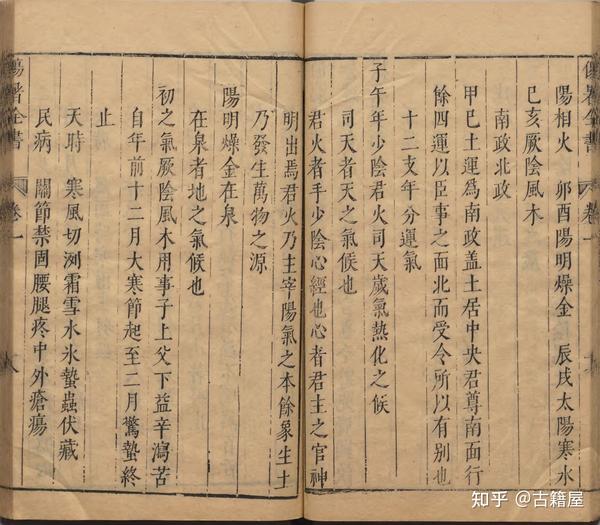 傷暑全書 卷一
陽相火 卯酉陽明燥金 辰戌太陽寒水
己亥厥陰風木
南政北政
甲己土運爲南政盖土居中央君尊南面行
餘四運以臣事之面北而受令所以有別也
十二支年分運氣
子午年少陰君火司天歲氣熱化之候
司天者天之氣候也
君火者手少陰心經也心者君主之官神
明出焉君火乃主宰陽氣之本餘象生土
乃發生萬物之源
陽明燥金在泉
在泉者地之氣候也
初之氣厥陰風木用事子上父下益辛瀉苦
自年前十二月大寒節起至二月驚蟄終
止
天時 寒風切冽霜雪水氷蟄蟲伏藏
民病 關節禁固腰腿疼中外瘡瘍
傷暑全書 卷一 八
知乎 @古籍屋